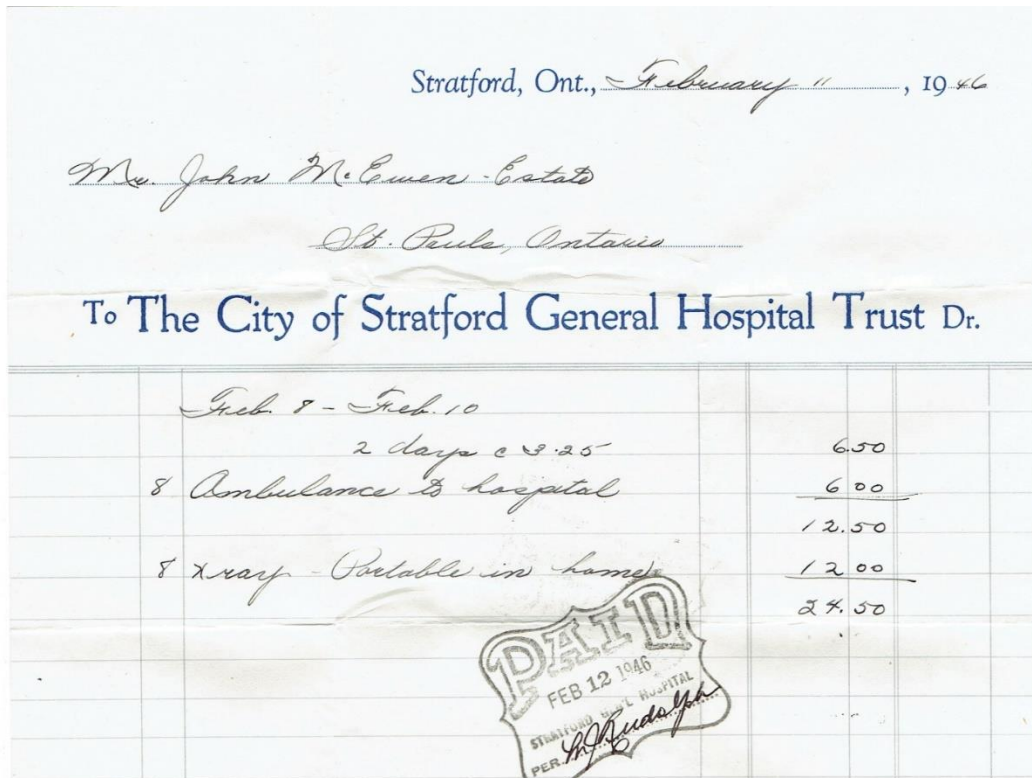 Stratford, Ont., February 11, 1946
Mr. John McEwen - Estate
St. Pauls, Ontario
To The City of Stratford General Hospital Trust Dr.
Feb. 8 - Feb. 10
2 days @ 3.25 6.50
8 Ambulance to hospital 6 00
12.50
8 Xray - Portable in home 12 00
24.50
PAID
FEB 12 1946
STRATFORD GEN'L HOSPITAL
PER. Rudolph